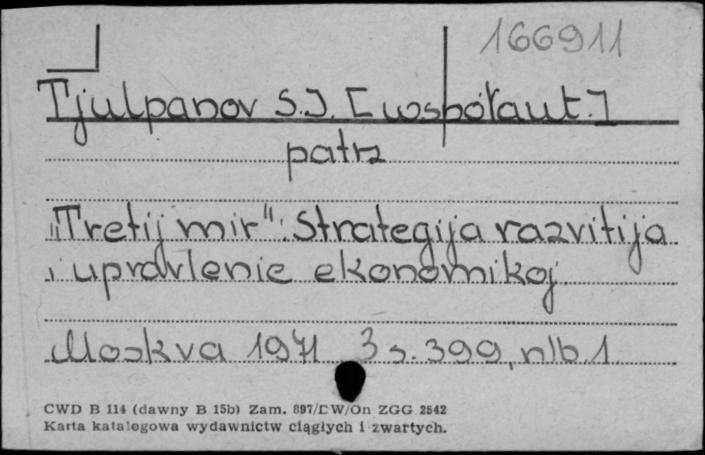 166911
Tjulpanov S.J. [współaut.]
patrz
"Tretij mir": Strategija razvitija
i upravlenie ekonomikoj.
Moskva 1971 s. 399, nlb. 1.
CWD B 114 (dawny B 15b) Zam. 897/DW/On ZGG 2542
Karta katalogowa wydawnictw ciągłych i zwartych.